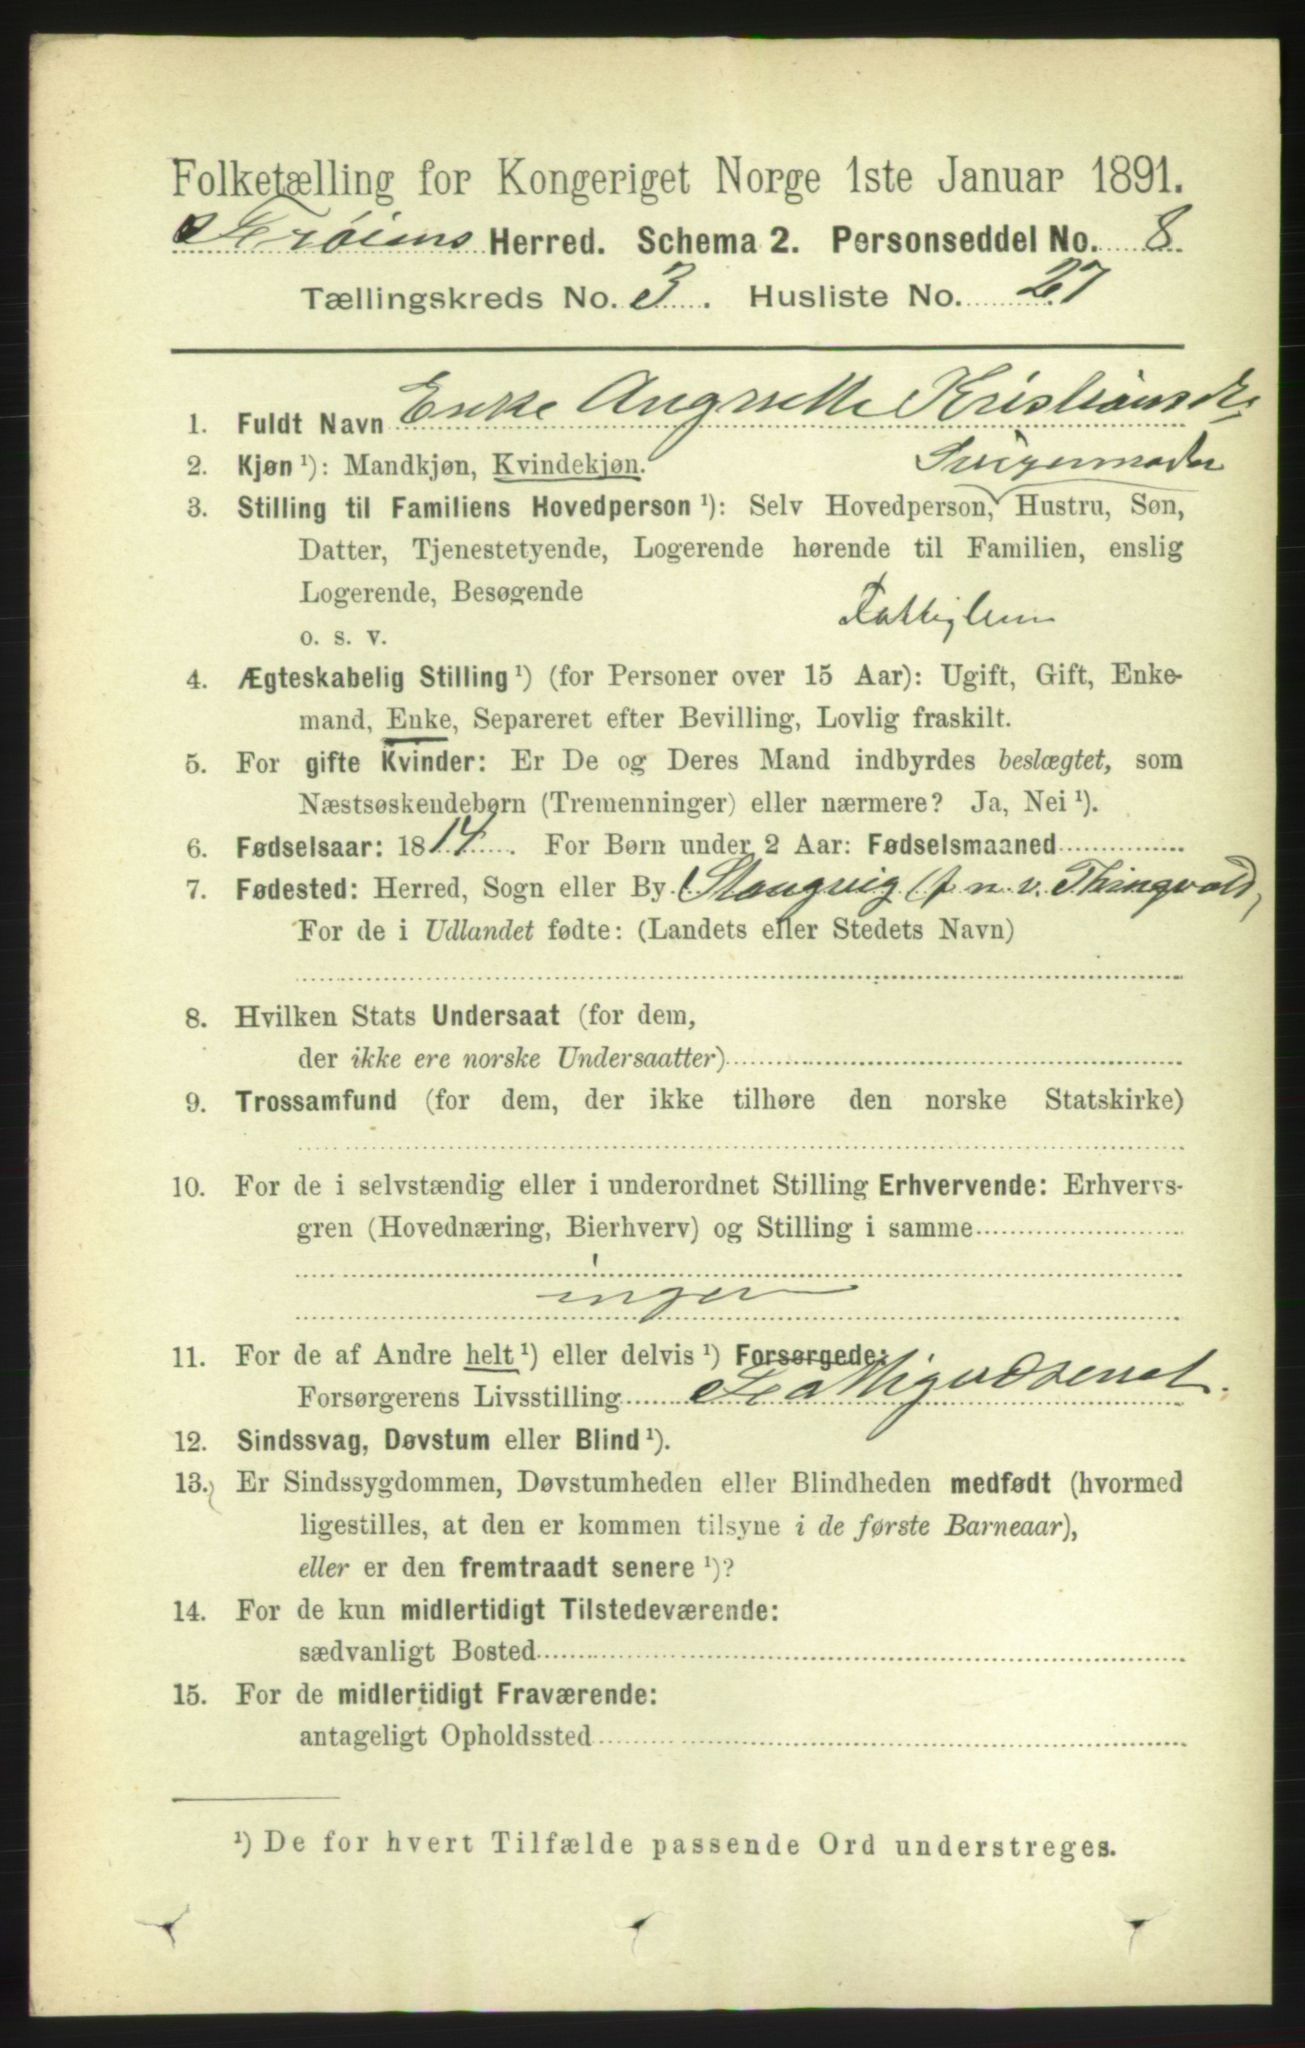 Folketælling for Kongeriget Norge 1ste Januar 1891.
Frøiens Herred. Schema 2. Personseddel No. 8.
Tællingskreds No. 3. Husliste No. 27
1. Fuldt Navn Enke Kristiansdtr
2. Kjøn ¹): Mandkjøn, Kvindekjøn. Svigermoder
3. Stilling til Familiens Hovedperson ¹): Selv Hovedperson, Hustru, Søn,
Datter, Tjenestetyende, Logerende hørende til Familien, enslig
Logerende, Besøgende
o. s. v. Fattiglem
4. Ægteskabelig Stilling ¹) (for Personer over 15 Aar): Ugift, Gift, Enke-
mand, Enke, Separeret efter Bevilling, Lovlig fraskilt.
5. For gifte Kvinder: Er De og Deres Mand indbyrdes beslægtet, som
Næstsøskendebørn (Tremenninger) eller nærmere? Ja, Nei ¹).
6. Fødselsaar: 1814. For Børn under 2 Aar: Fødselsmaaned
7. Fødested: Herred, Sogn eller By Stangvig (p n. v. Thingvold)
For de i Udlandet fødte: (Landets eller Stedets Navn)
8. Hvilken Stats Undersaat (for dem,
der ikke ere norske Undersaatter)
9. Trossamfund (for dem, der ikke tilhøre den norske Statskirke)
10. For de i selvstændig eller i underordnet Stilling Erhvervende: Erhvervs-
gren (Hovednæring, Bierhverv) og Stilling i samme
ingen
11. For de af Andre helt ¹) eller delvis ¹) Forsørgede:
Forsørgerens Livsstilling Fattigvæsenet.
12. Sindssvag, Døvstum eller Blind ¹).
13. Er Sindssygdommen, Døvstumheden eller Blindheden medfødt (hvormed
ligestilles, at den er kommen tilsyne i de første Barneaar),
eller er den fremtraadt senere ¹)?
14. For de kun midlertidigt Tilstedeværende:
sædvanligt Bosted
15. For de midlertidigt Fraværende:
antageligt Opholdssted
¹) De for hvert Tilfælde passende Ord understreges.